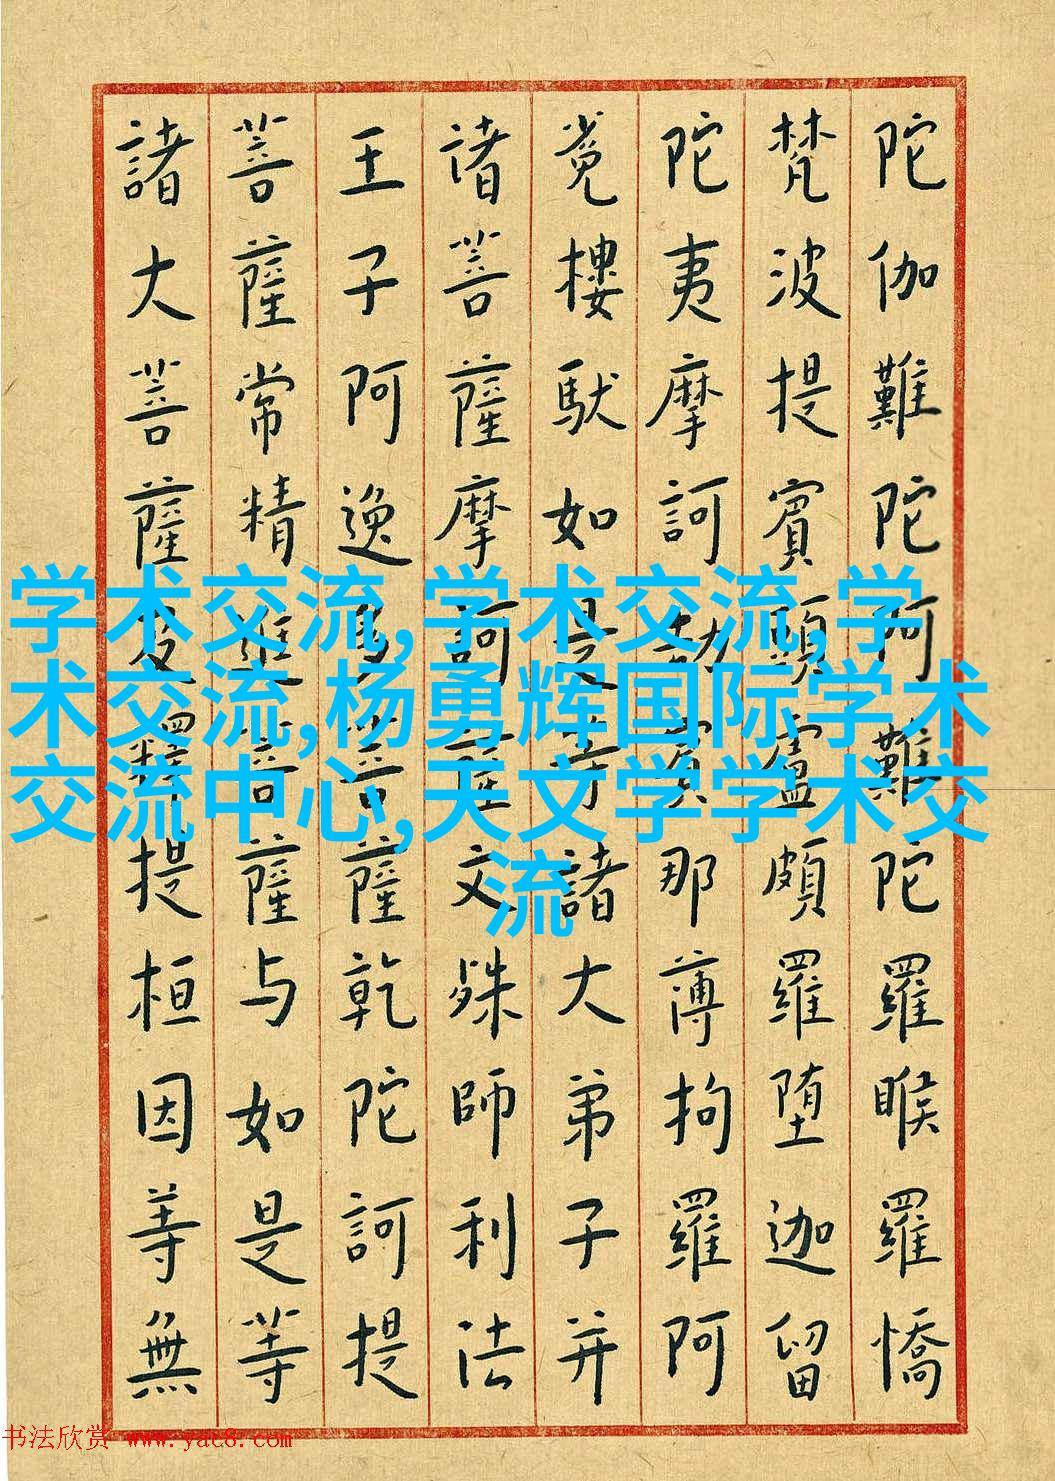 陀伽難陀阿難陀羅睺羅憍
梵波提賓頭盧頗羅堕迦留
陀夷摩訶劫賓那薄拘羅阿
樓馱如是等諸大弟子并
诸菩薩摩訶薩文殊師利法
王子阿逸多菩薩乾陀訶提
菩薩常精進菩薩与如是等
諸大菩薩及釋提桓因等無
学术交流,学术交流,学
术交流,杨勇辉国际学术
交流中心,天文学学术交
流
书法欣赏 www.yac8.com